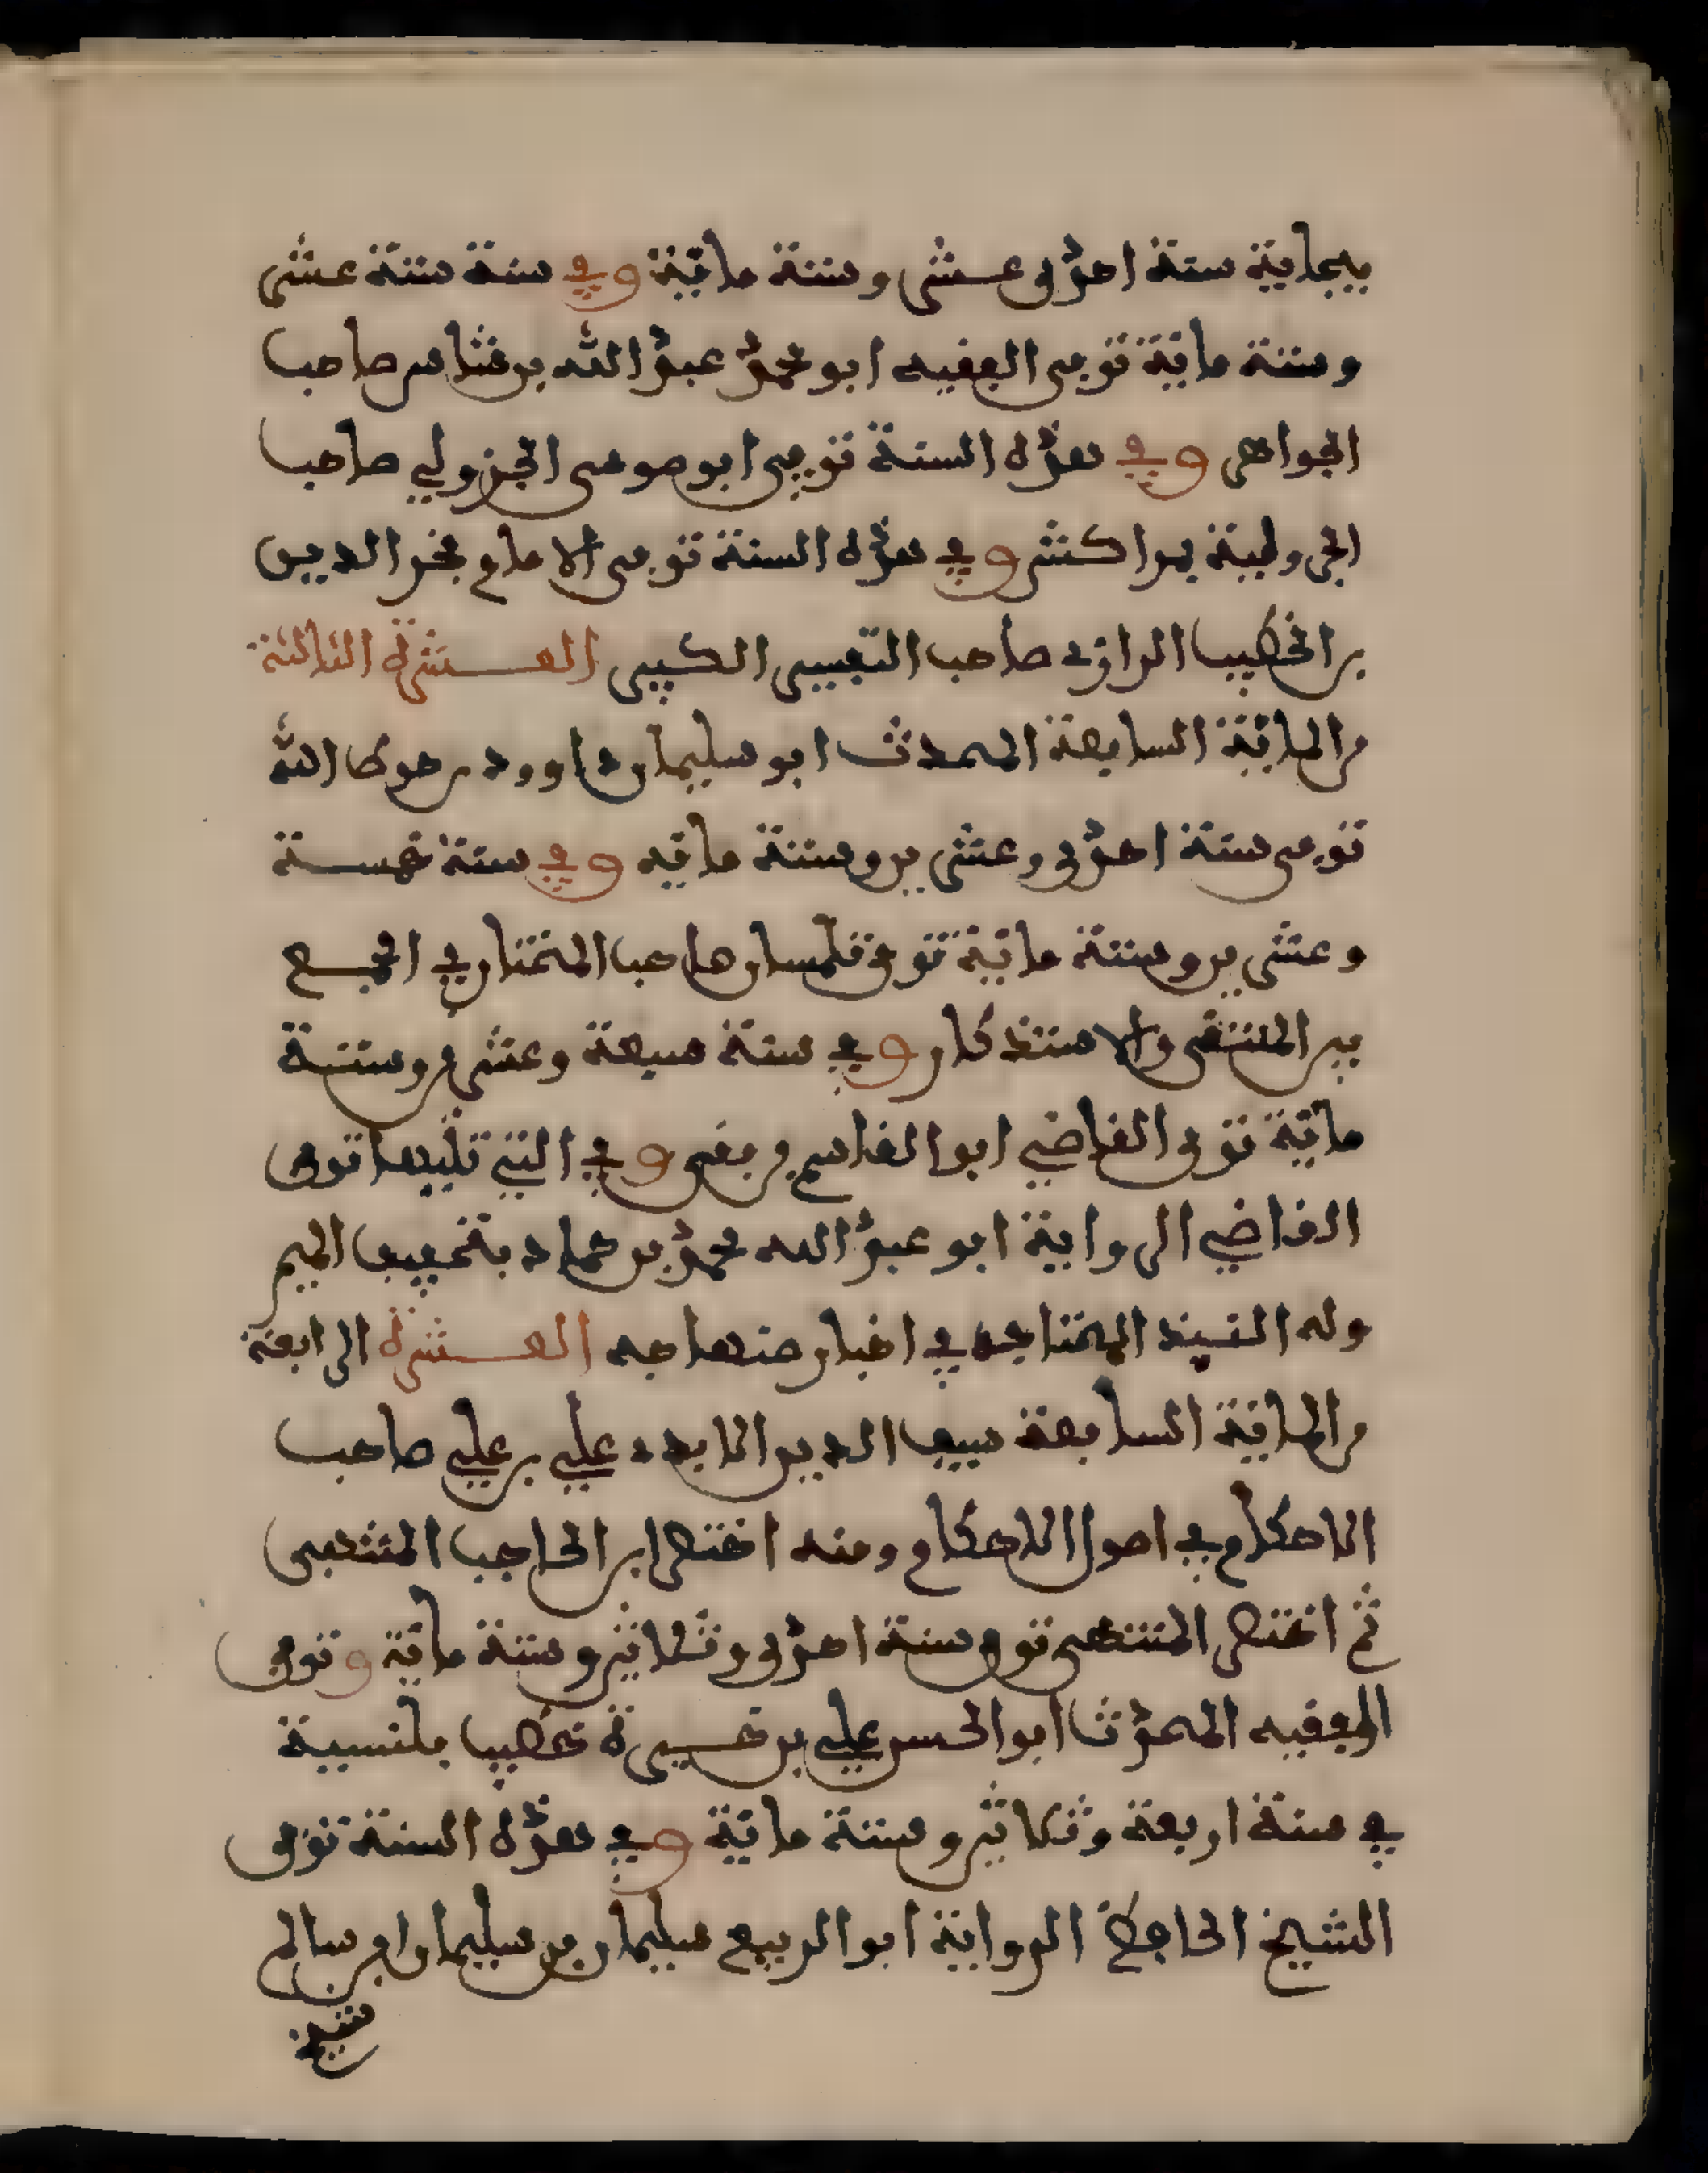 ببجاية سنة احدى عشر وستة ماية وفي سنة ستة عشر
وستة ماية توفي الفقيه ابو محمد عبد الله بن شاس صاحب
الجواهر وفي هذه السنة توفي ابو موسى الجزولي صاحب
الجرولية بمراكش وفي هذه السنة توفي الامام فخر الدين
بن الخطيب الرازي صاحب التفسير الكبير العشرة الثالثة
من الماية السابعة المحدث ابو سليمان داوود بن حوط الله
توفي سنة احدى وعشرين وستة مايه وفي سنة خمسة
وعشرين وستة ماية توفي تلمسان صاحب المختار في الجمع
بين المنتقى والاستذكار وفي سنة سبعة وعشرين وستة
ماية توفي القاضي ابو القاسم بن بقي وفي التي تليها توفي
القاضي الرواية ابو عبد الله محمد بن حماد بتخفيف الميم
وله النبذ المحتاجة في اخبار صنهاجه العشرة الرابعة
من الماية السابعة سيف الدين الابدد علي بن علي صاحب
الاحكام في اصول الاحكام ومنه اختصر ابن الحاجب المنتهى
ثم اختصر المنتهى توفي سنة احدى وثلاثين وستة ماية وتوفي
الفقيه المحدث ابو الحسن علي بن خيرة خطيب بلنسية
في سنة اربعة وثلاثين وستة ماية وفي هذه السنة توفي
الشيخ الحافظ الرواية ابو الربيع سليمان بن سليمان ابن سالم
شيخ